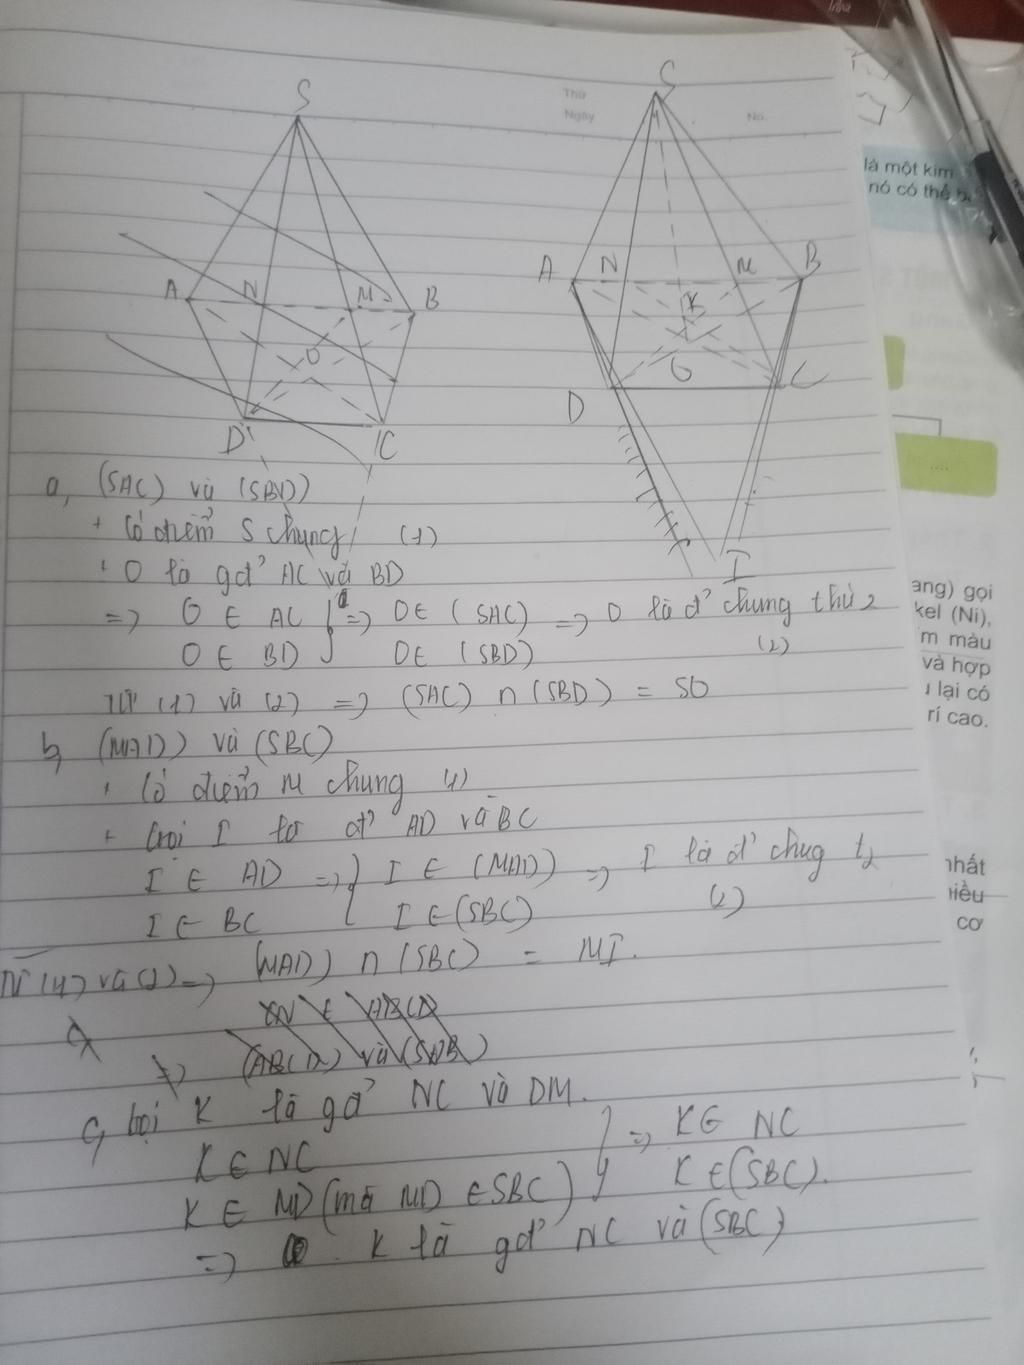 Thứ
Ngày
No.
S
S
A
N
M
B
O
D
C
A
N
M
B
K
O
D
C
I
là một kim
nó có thể b
ang) gọi
kel (Ni),
m màu
và hợp
lại có
rí cao.
nhất
iều
cơ
a, (SAC) và (SBD)
+ Có điểm S chung (1)
+ O là gđ' AC và BD
=> O ∈ AC } => O ∈ (SAC) => O là đ' chung thứ 2
O ∈ BD O ∈ (SBD) (2)
Từ (1) và (2) => (SAC) ∩ (SBD) = SO
b, (MAD) và (SBC)
+ Có điểm M chung (1)
+ Gọi I là đ' AD và BC
I ∈ AD => { I ∈ (MAD) => I là đ' chug t2
I ∈ BC I ∈ (SBC) (2)
Từ (1) và (2) => (MAD) ∩ (SBC) = MI.
CN ∈ ABCD
=> (ABCD) và (SAB)
c, Gọi K là gđ' NC và DM.
K ∈ NC } => K ∈ NC
K ∈ MD (mà MD ∈ SBC) K ∈ (SBC).
=> K là gđ' NC và (SBC)